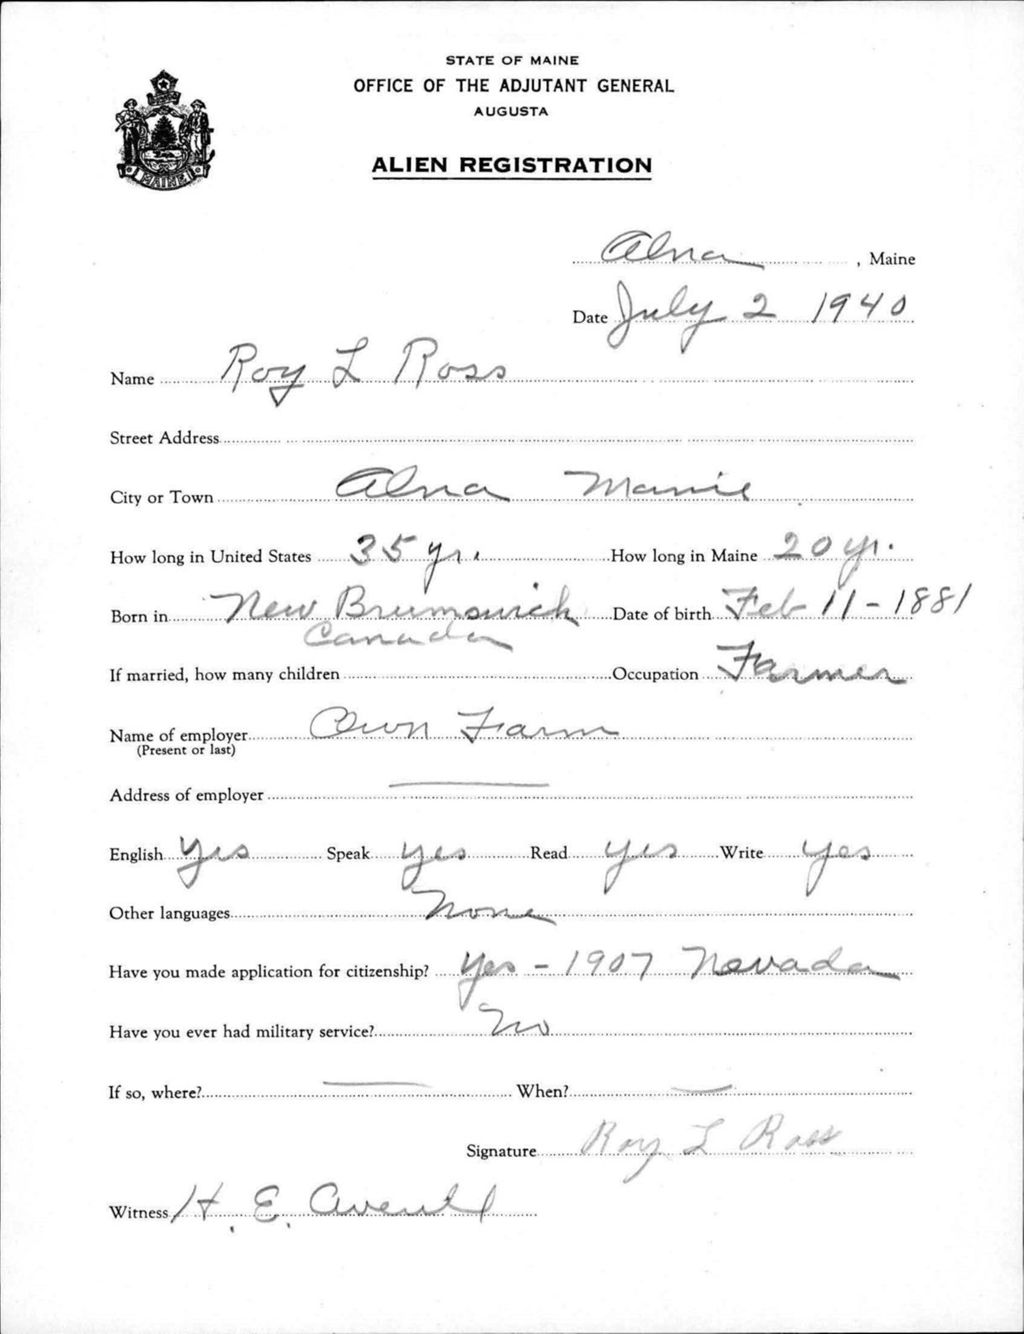 STATE OF MAINE
OFFICE OF THE ADJUTANT GENERAL
AUGUSTA
MAINE
ALIEN REGISTRATION
Alna, Maine
Date July 2 1940
Name Roy L Ross
Street Address
City or Town Alna Manie
How long in United States 35 yr. How long in Maine 20 yr.
Born in New Brumswick Date of birth Feb 11-1881
Canada
If married, how many children Occupation Farmer
Name of employer Own Farm
(Present or last)
Address of employer —
English Yes Speak yes Read yes Write yes
Other languages None
Have you made application for citizenship? Yes - 1907 Nevada
Have you ever had military service? No
If so, where? — When? —
Signature Roy L Ross
Witness H. E.